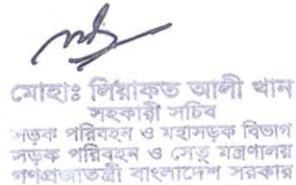 মোহাঃ লিয়াকত আলী খান
সহকারী সচিব
সড়ক পরিবহন ও মহাসড়ক বিভাগ
সড়ক পরিবহন ও সেতু মন্ত্রণালয়
গণপ্রজাতন্ত্রী বাংলাদেশ সরকার